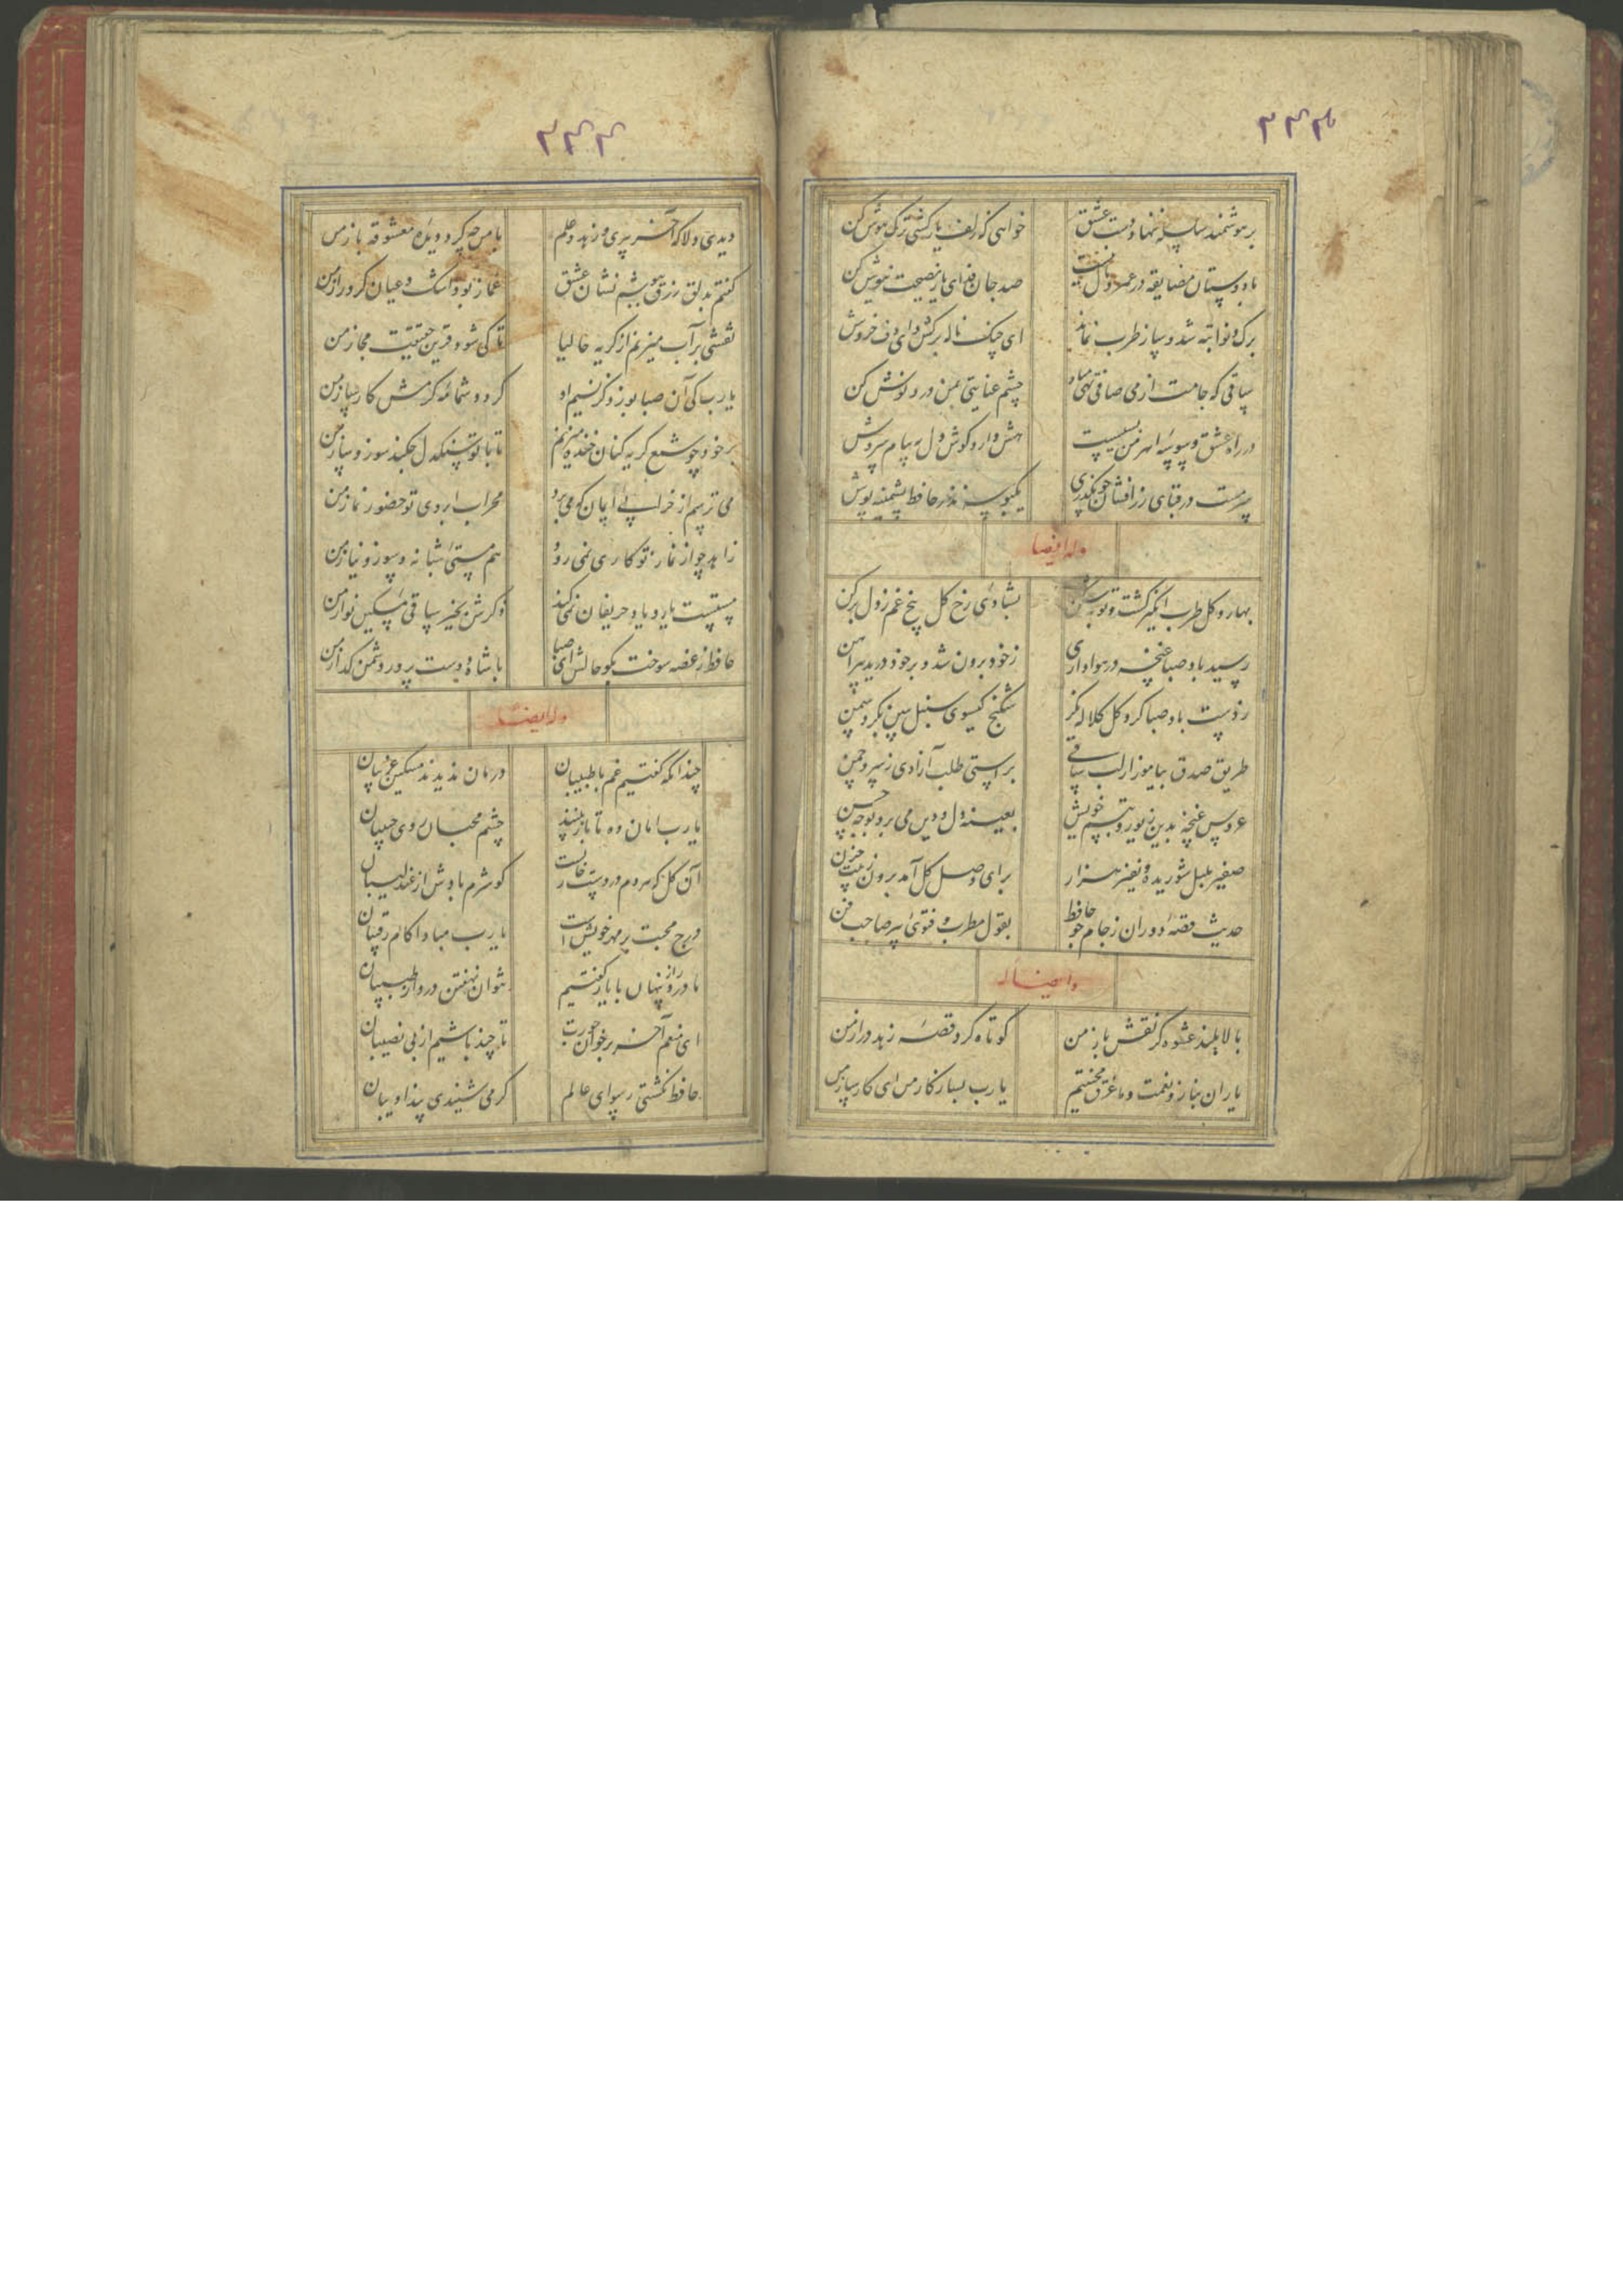 ۳۴۵
بر هوشمند سلسله ننهاد دست عشق خواهی که زلف یار کشی ترک هوش کن
با دوستان مضایقه در عمر و مال نیست صد جان فدای یار نصیحت نیوش کن
برک و نوا تبه شد و ساز طرب نماند ای چنک ناله برکش و ای دف خروش کن
ساقی که جامت از می صافی تهی مباد چشم عنایتی بمن درد نوش کن
در راه عشق وسوسه اهرمن بسیست هش دار و کوش دل به پیام سروش کن
سرمست در قبای زرافشان چو بگذری یکبوسه نذر حافظ پشمینه پوش کن
وله ایضا
بهار و کل طرب انگیز کشت و توبه شکن بشادی رخ کل بیخ غم ز دل برکن
رسید باد صبا غنچه در هواداری ز خود برون شد و بر خود درید پیراهن
ز دست باد صبا کرد کل کلاله نکر شکنج کیسوی سنبل ببین بکرد سمن
طریق صدق بیاموز از لب ساقی براستی طلب آزادی ز سرو چمن
عروس غنچه بدین زیور و تبسم خویش بعینه دل و دین می برد بوجه حسن
صفیر بلبل شوریده و نفیر هزار برای وصل کل آمد برون ز بیت حزن
حدیث قصه دوران ز جام جو حافظ بقول مطرب و فتوی پیر صاحب فن
وایضا له
بالا بلند عشوه کر نقش باز من کوتاه کرد قصه زهد دراز من
یاران بناز و نعمت و ما غرق محنتیم یارب بساز کار من ای کارساز من
۳۴۴
دیدی دلا که آخر پیری و زهد و علم با من چه کرد دیده معشوقه باز من
کفتم بدلق زرق بپوشم نشان عشق غماز بود اشک و عیان کرد راز من
نقشی بر آب میزنم از کریه حالیا تا کی شود قرین حقیقت مجاز من
یارب کی آن صبا بوزد کز نسیم او کردد شمامه کرمش کارساز من
بر خود چو شمع کریه کنان خنده میزنم تا با تو سنکدل چکند سوز و ساز من
می ترسم از خرابی ایمان که می برد محراب ابروی تو حضور نماز من
زاهد چو از نماز تو کاری نمی رود هم مستی شبانه و سوز و نیاز من
مستست یار و یاد حریفان نمی کند ذکرش بخیر ساقی مسکین نواز من
حافظ ز غصه سوخت بکو حالش ای صبا با شاه دوست پرور دشمن کداز من
وله ایضا
چندانکه کفتیم غم با طبیبان درمان ندیدند مسکین غریبان
یارب امان ده تا باز بیند چشم محبان روی حبیبان
آن کل که هر دم در دست خاریست کو شرم بادش از عندلیبان
درج محبت بر مهر خویش است یارب مبادا کام رقیبان
ما درد پنهان با یار کفتیم نتوان نهفتن درد از طبیبان
ای منعم آخر بر خوان جودت تا چند باشیم از بی نصیبان
حافظ نکشتی رسوای عالم کر می شنیدی پند ادیبان